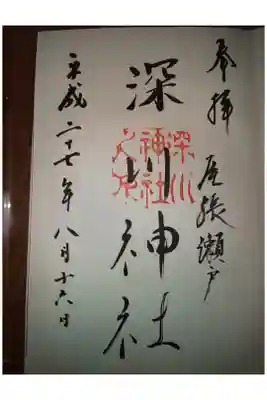 奉拝
尾張瀬戸
深川神社
深川
神社
之印
平成二十七年八月十六日